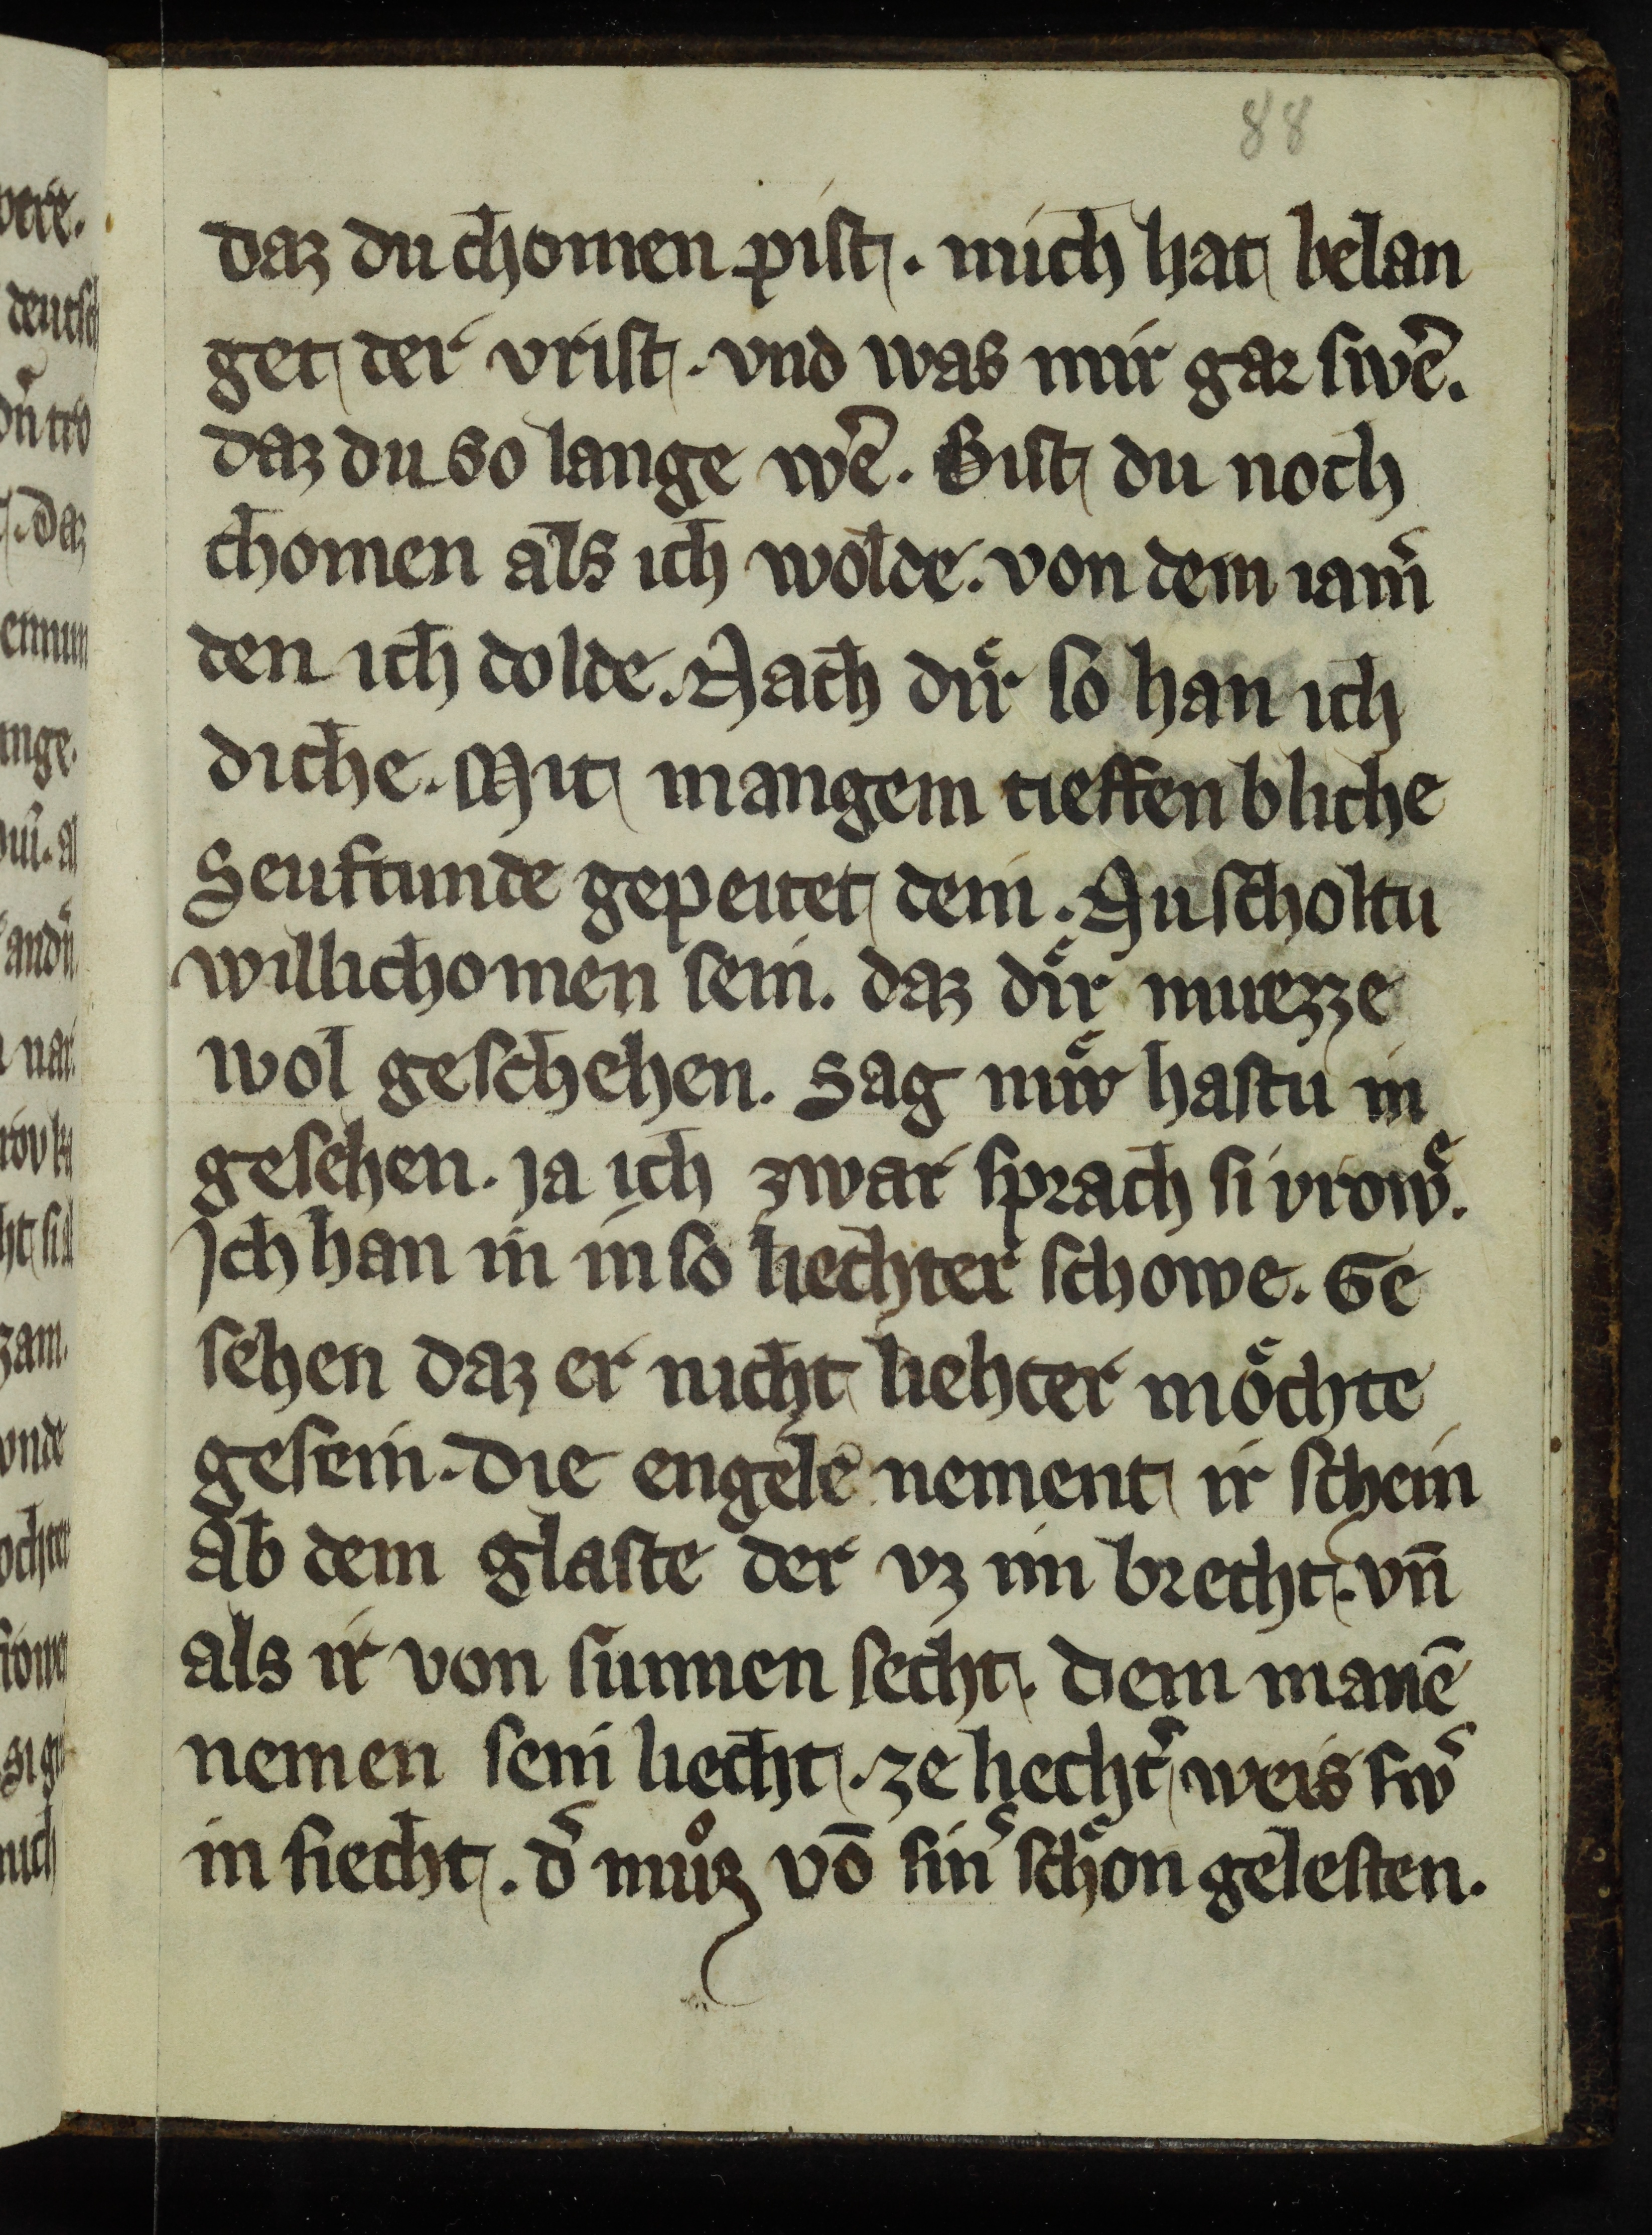 88
daz du chomen pist. mich hat belan
get der vrist. vnd was mir gar swe͛.
daz du so lange we͛. Bist du noch
chomen als ich wolde. von dem iam͛
den ich dolde. Nach dir so han ich
diche. Mit mangem tieffen bliche
Seuftunde gepeitet dein. Nu scholtu
willichomen sein. daz dir muezze
wol geschehen. Sag mir hastu in
gesehen. Ja ich zwar sprach si vrowͤ.
Ich han in in so liechter schowe. Ge
sehen daz er nicht liehter moͤchte
gesein. Die engele nement ir schein
Ab dem glaste der vz im brecht. vn̄
als ir von sunnen secht. Dem manē
nemen sein liecht. ze liecht͛ weis sw͛
in siecht. d͛ muͦz vō sin͛ schoͤn gelesten.